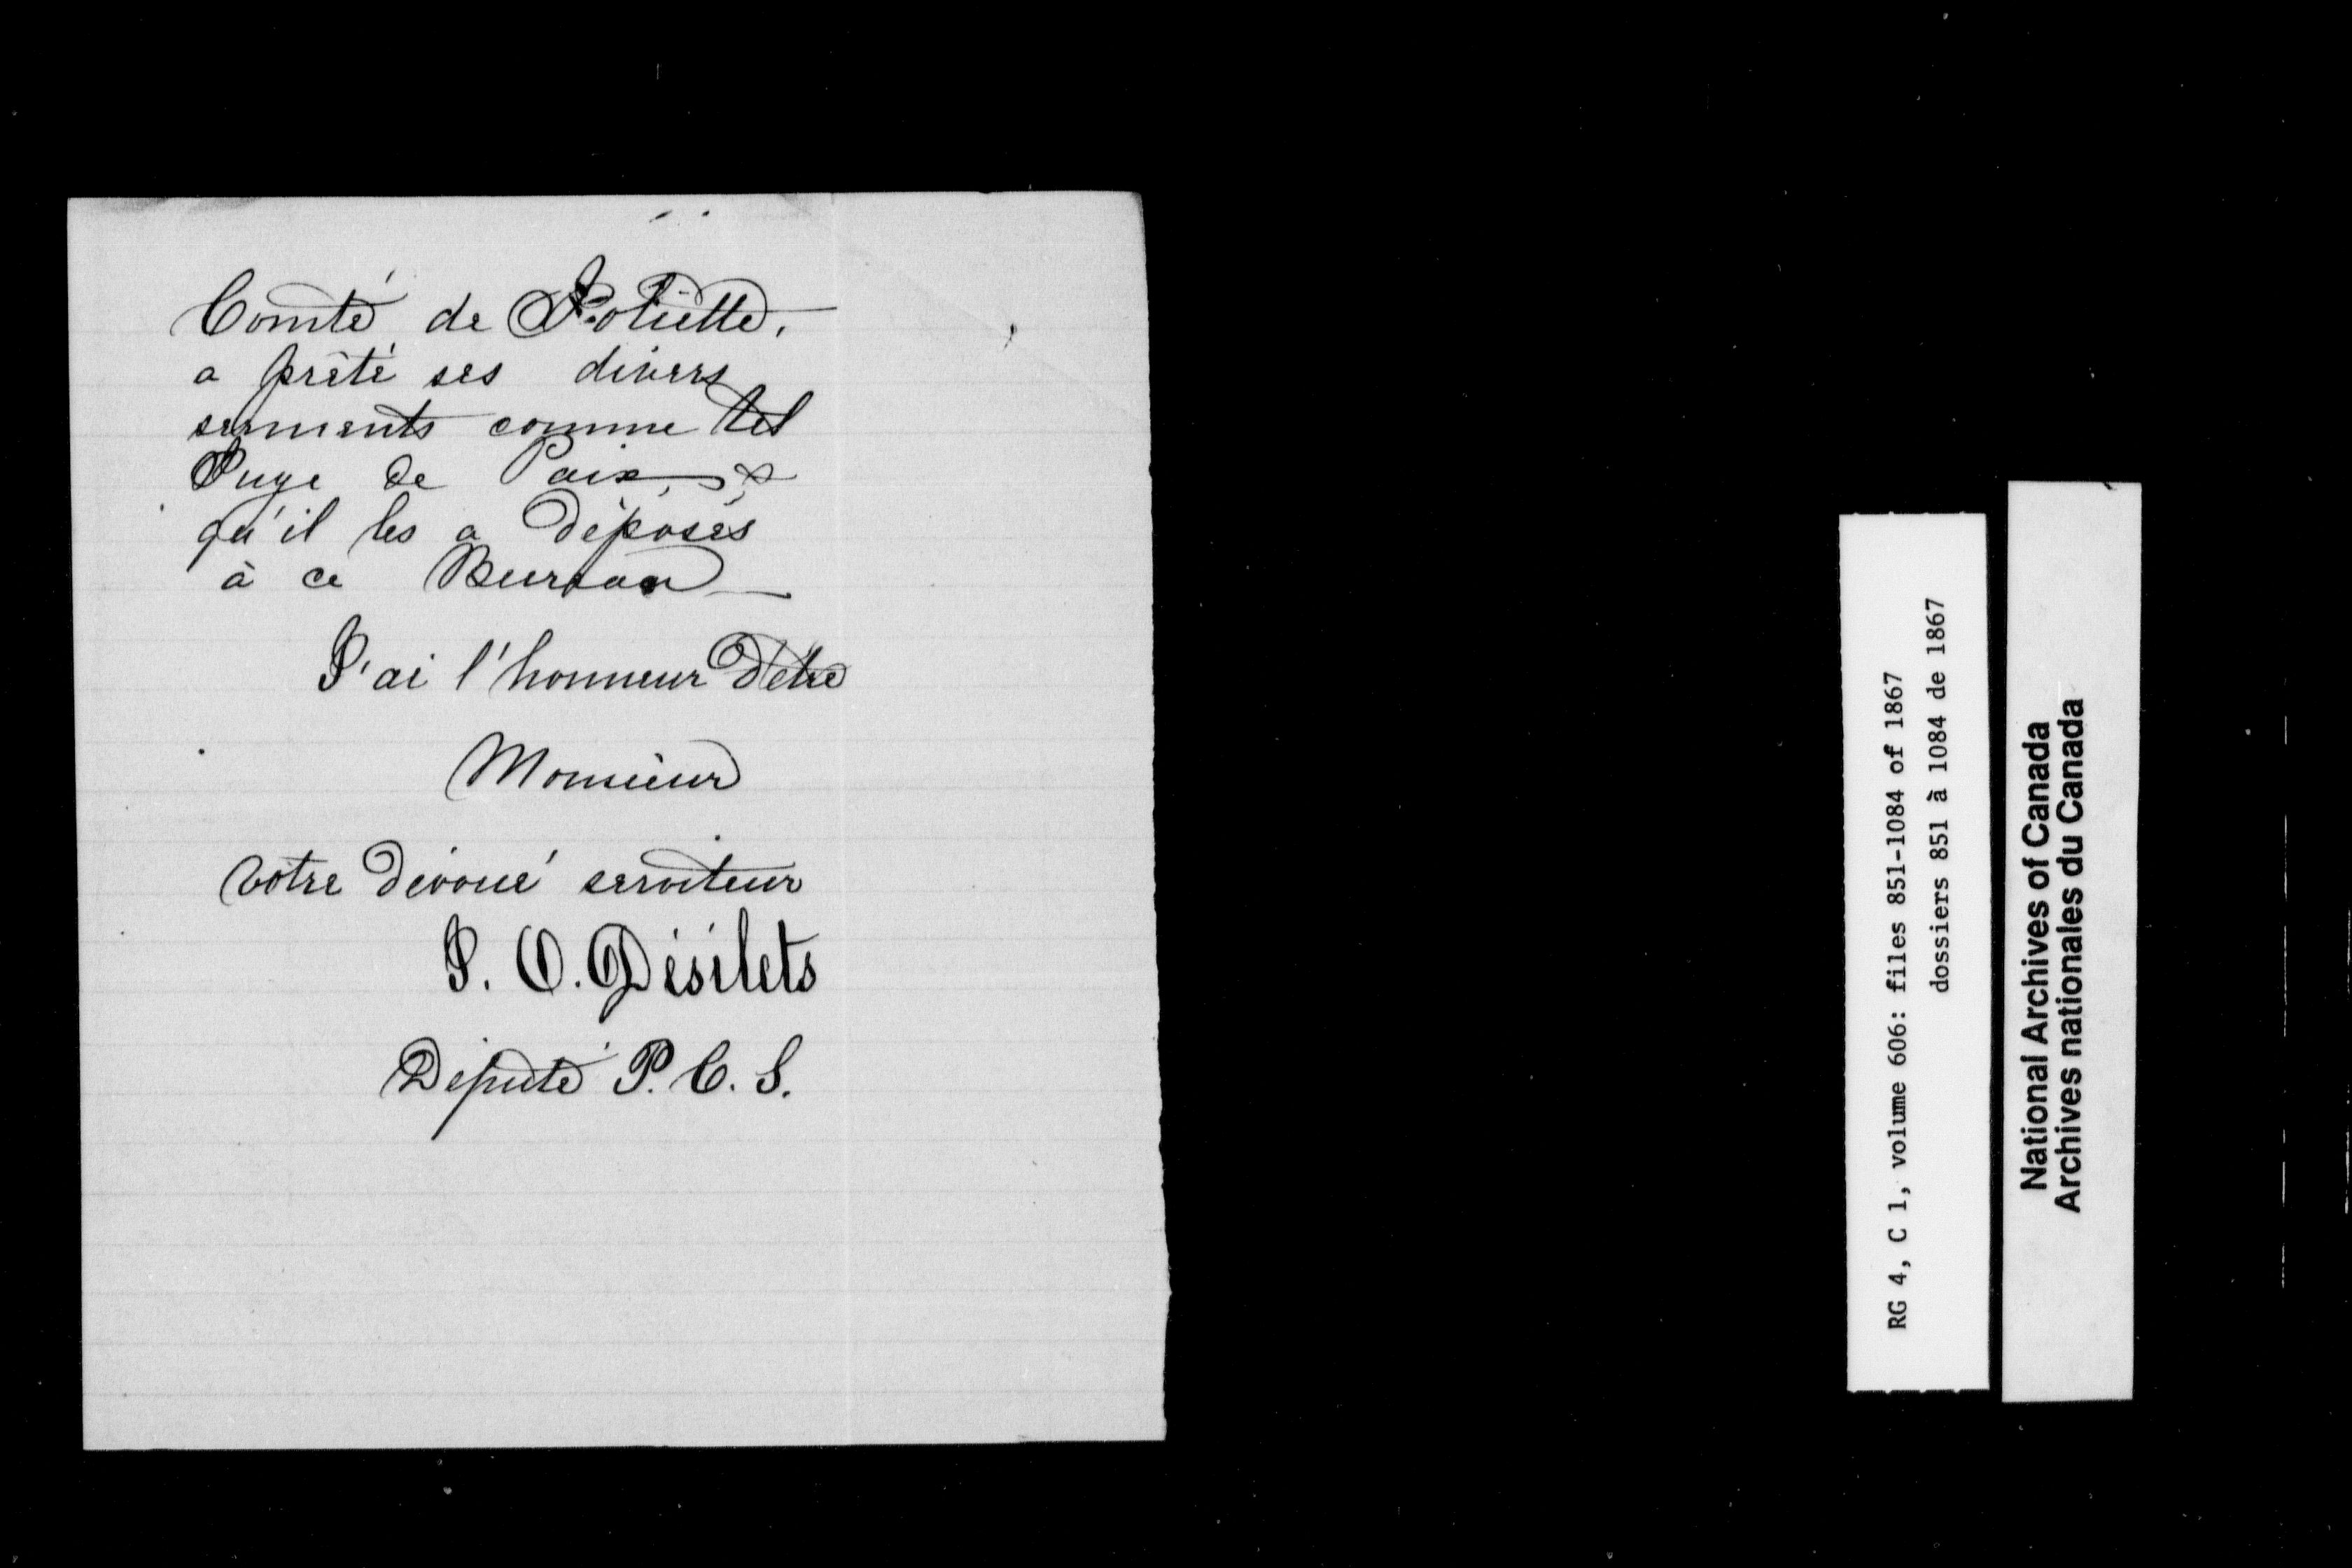 Comté de Joliette,
a prêté ses divers
serments comme tel
Juge de Paix, &
qu'il les a déposés
à ce Bureau —
J'ai l'honneur d'être
Monsieur
votre dévoué serviteur
J. O. Désilets
Député P. C. S.
RG 4, C 1, volume 606: files 851-1084 of 1867
dossiers 851 à 1084 de 1867
National Archives of Canada
Archives nationales du Canada